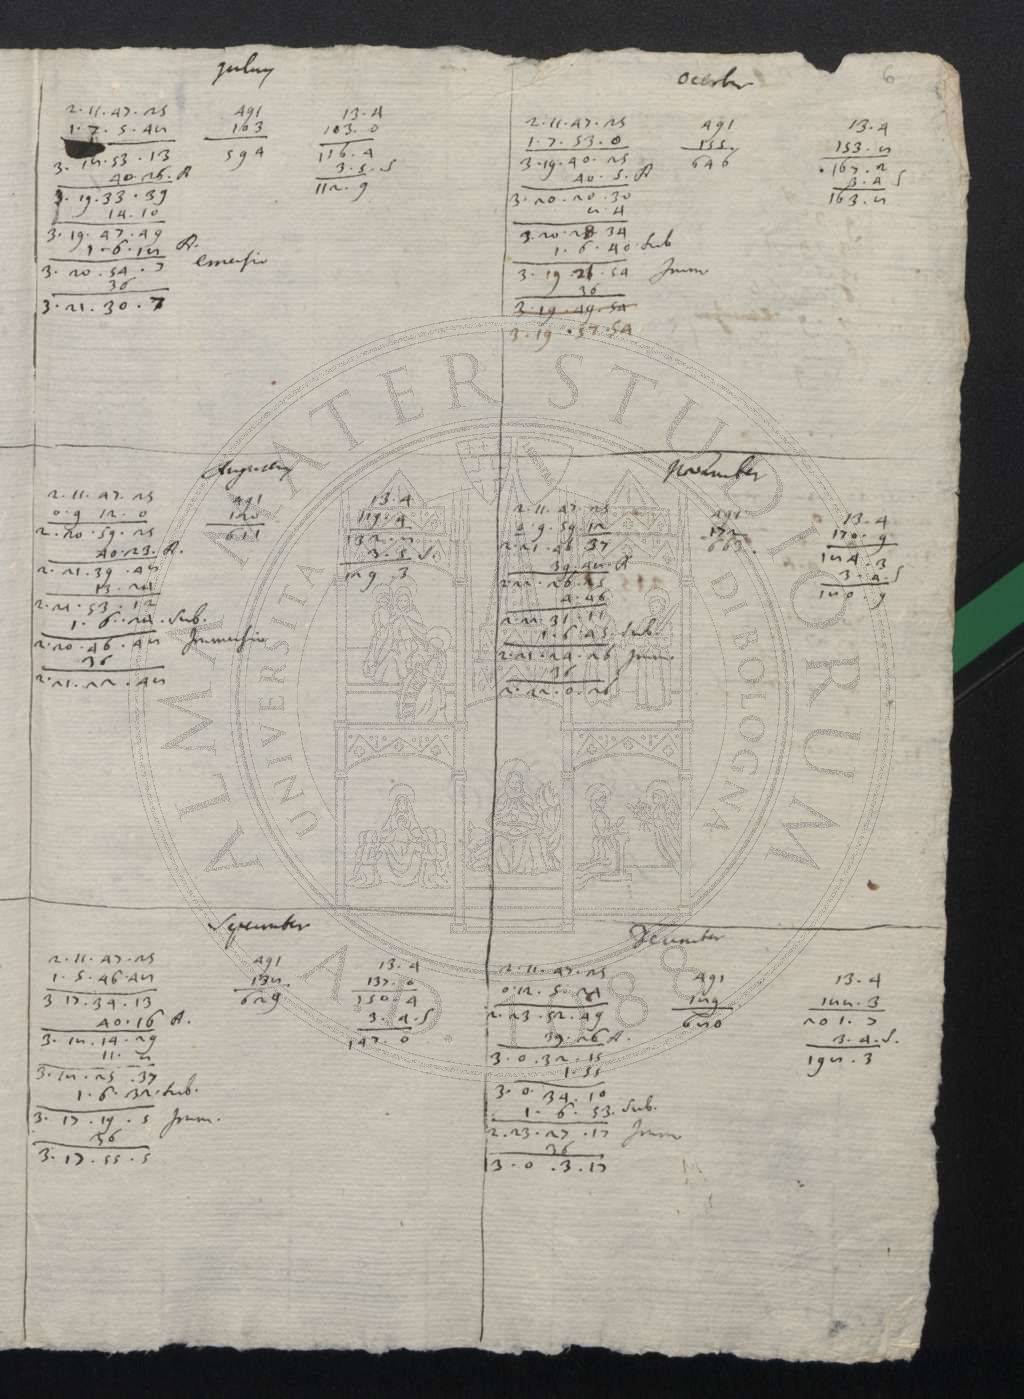 Julius
2.11.47.25 491 13.4
1.7.5.48 103 103.0
3.18.53.13 594 116.4
40.26.A 3.5.S
3.19.33.39 112.9
14.10
3.19.47.49
1.6.18 A.
3.20.54.7 emersio
36
3.21.30.7
October
2.11.47.25 491 13.4
1.7.53.0 155. 153.8
3.19.40.25 646 167.2
40.5.A 3.4 S
3.20.20.30 163.8
8.4
3.20.28 34
1.6.40 sub
3.19 21.54 Imm
36
3.19.49.54
3.19.57.54
Augustus
2.11.47.25 491 13.4
0.9 12.0 120 119.4
2.20.59.25 611 132.8
40.23.A. 3.5 S.
2.21.39.48 129.3
13.24
2.21.53.12
1.6.24.sub.
2.20.46.48 Immersio
36
2.21.22.48
November
2.11.47.25 491 13.4
0.9.59.12 172 170.9
2.21.46.37 663. 184.3
39.48.A 3.4.S
2.22.26.25 180.9
4.46
2.22.31.11
1.6.45.sub.
2.21.24.26 Imm
36
2.22.0.26
September
2.11.47.25 491 13.4
1.5.46 48 138. 137.0
3 17.34.13 629 150.4
40.16 A. 3.4.S
3.18.14.29 147.0
11.8
3.18.25.37
1.6.32.sub.
3.17.19.5 Imm.
36
3.17.55.5
December
2.11.47.25 491 13.4
0.12.5.24 189 188.3
2.23.52.49 680 201.7
39.26 A. 3.4.S.
3.0.32.15 198.3
1.55
3.0 34.10
1.6.53.sub.
2.23.27.17 Imm
36
3.0.3.17
6
ALMA MATER STUDIORUM
UNIVERSITÀ DI BOLOGNA
A.D. 1088